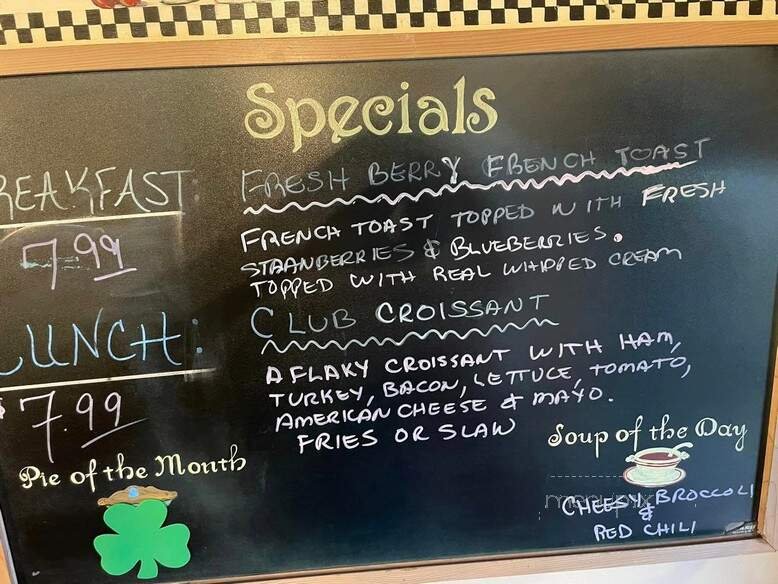 Specials
REAKFAST:
7.99
FRESH BERRY FRENCH TOAST
FRENCH TOAST TOPPED WITH FRESH
STRANBERRIES & BLUEBERRIES.
TOPPED WITH REAL WHIPPED CREAM
LUNCH:
$7.99
CLUB CROISSANT
A FLAKY CROISSANT WITH HAM,
TURKEY, BACON, LETTUCE, TOMATO,
AMERICAN CHEESE & MAYO.
FRIES OR SLAW
Pie of the Month
Soup of the Day
CHEESY BROCCOLI
&
RED CHILI
menupix